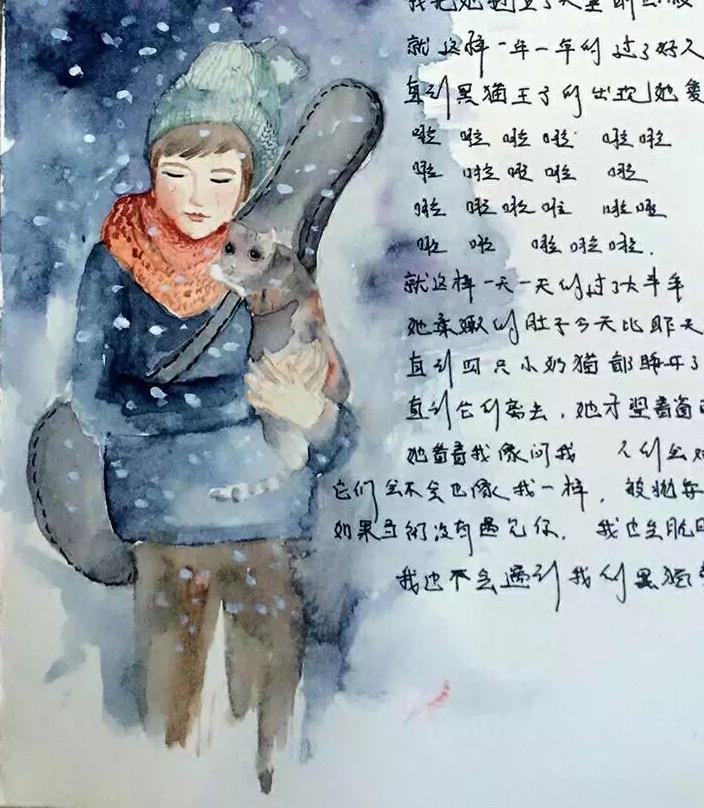 我把她
就这样一年一年的过了好久
直到黑猫王子的出现她爱
啦 啦 啦 啦 啦 啦
啦 啦 啦 啦 啦
啦 啦 啦 啦 啦 啦
啦 啦 啦 啦 啦.
就这样一天一天的过了大半年
她柔嫩的肚子今天比昨天
直到四只小奶猫都睁开了
直到它们离去,她才望着窗
她看着我像问我 人们会
它们会不会也像我一样,被抛弃
如果街没有遇见你,我也
我也不会遇到我的黑猫